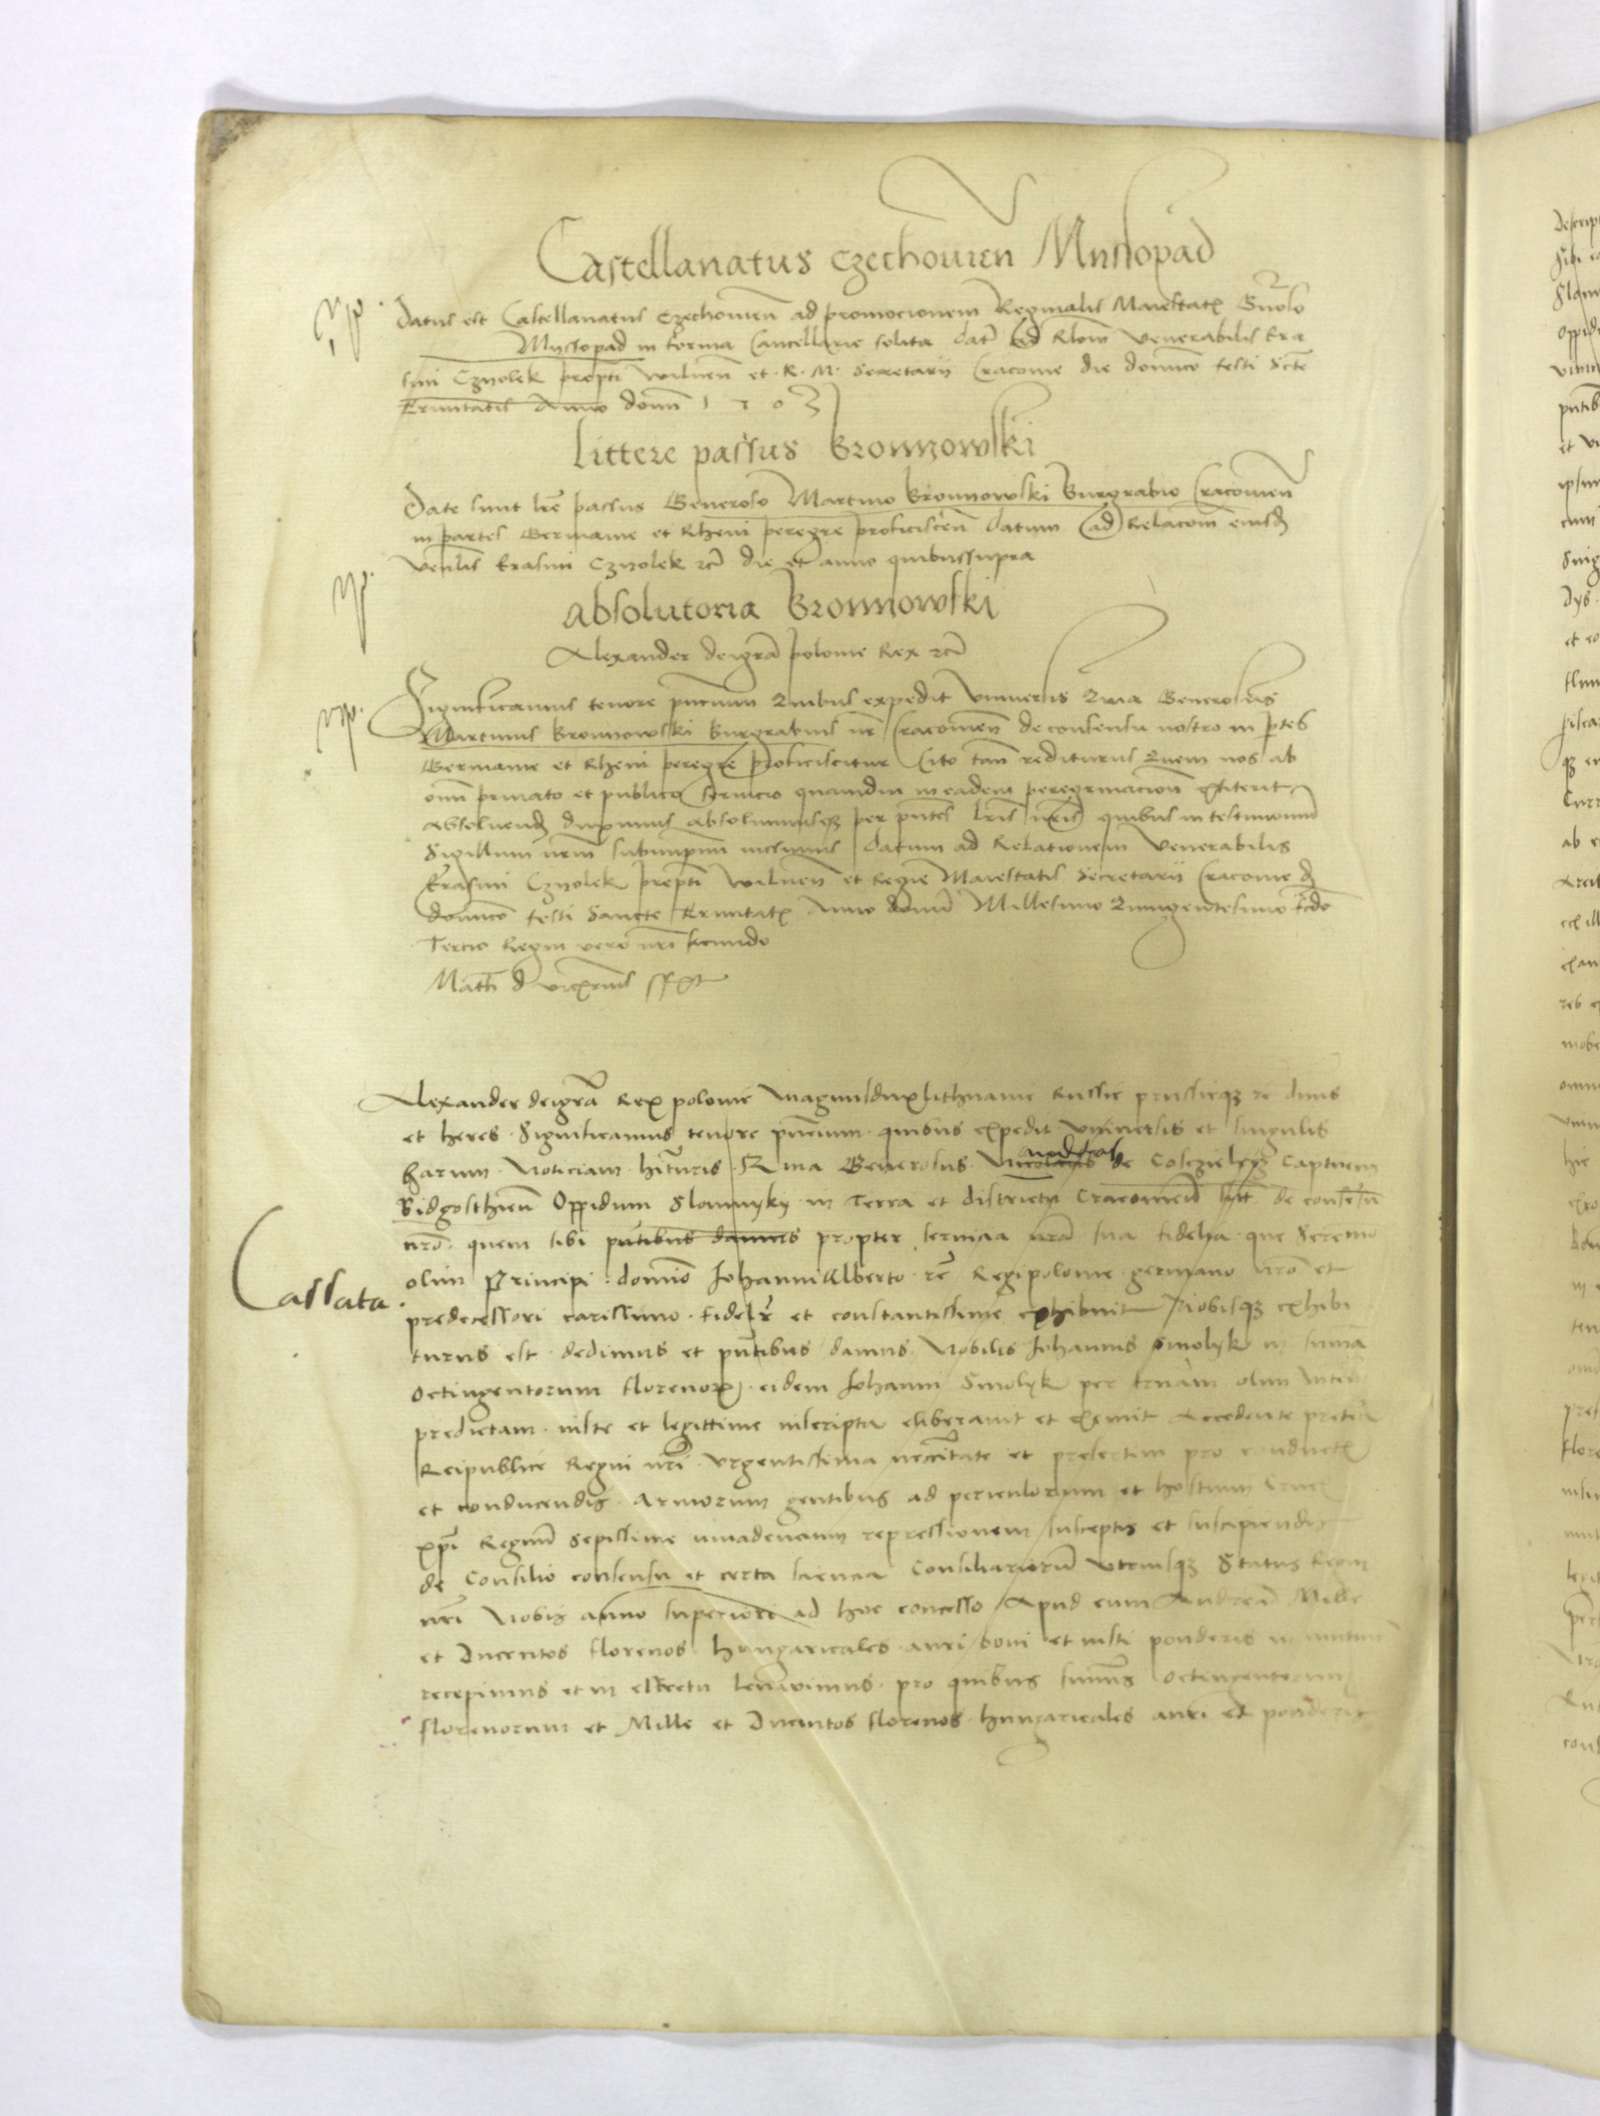 Castellanatus Czechovien Myssopad
Datus est Castellanatus Czechovien ad promocionem Reginalis Maiestatis Gnoso
Myssopad in forma Cancellarie solita dat ad Rlom Venerabilis Era
smi Czyolek prepti Wilnen et R. M. Secretarij Cracovie die domico festi Scte
Trinitatis Anno domi 1503
Littere passus Bronnowski
Date sunt lre passus Generoso Martino Bronnowski Burgrabio Cracovien
in partes Germanie et Rheni peregre proficiscen datum ad Relacom eiusd
Venlis Erasmi Czyolek etc die et anno quibussupra
Absolutoria Bronnowski
Alexander deigra polonie Rex etc
Significamus tenore pncium Quibus expedit Universis Quia Generosus
Martinus Bronnowski Burgrabius nr Cracovien de consensu nostro in ptes
Germanie et Rheni peregre proficiscitur Cito tan rediturus Quem nos ab
omi privato et publico servicio quamdiu in eadem peregrinacion
absolvend duximus absolvimusq per pntes lris nris quibus in testimonium
Sigillum nrm subimpm Datum ad Relationem Venerabilis
Erasmi Czyolek prepti Wilnen et Regie Maiestatis Secretarij Cracovie d
domico festi Sancte Trinitatis Anno domi Millesimo Quingentesimo
Tercio Regni vero nri secundo
Math d
Alexander deigra Rex polonie magnusdux Lithuanie Russie prussieq etc dnus
et heres Significamus tenore pncium quibus expedit universis et singulis
harum noticiam hituris Quia Generosus Nicolaus Andreas de Coszczielycz Captneus
Bidgosthien Oppidum Slomnyky in Terra et districtu Cracovien de consesu
nro quem sibi pntibus damus propter servicia sua fidelia que Sereno
Cassata
olim Principi domino Iohanni Alberto Regi polonie germano nro et
predecessori carissimo fidelr et constantissime exhibuit Nobisq exhibi
turus est dedimus et pntibus damus Nobilis Iohannis Smolyk in suma
Octingentorum florenor eidem Iohanni Smolyk per olim
predictam iuste et legittime inscripta eliberavit et exemit Accedente
Reipublice Regni nri Urgentissima neccitate et presertim pro conduct
et conducendis Armorum gentibus ad periculorum et hostium
xpi Regnu Sepissime invadencium repressionem susceptis et suscipiendis
de Consilio consensu et certa sciencia Consiliariorum utriusq Status Regni
nri Nobis anno superiori ad hoc concesso Apud eum Andrea Mille
et Ducentos florenos hungaricales auri boni et iusti ponderis in
recepimus et in effectu levavimus pro quibus sumis Octingentorum
florenorum et Mille et Ducentos florenos hungaricales auri et ponderis